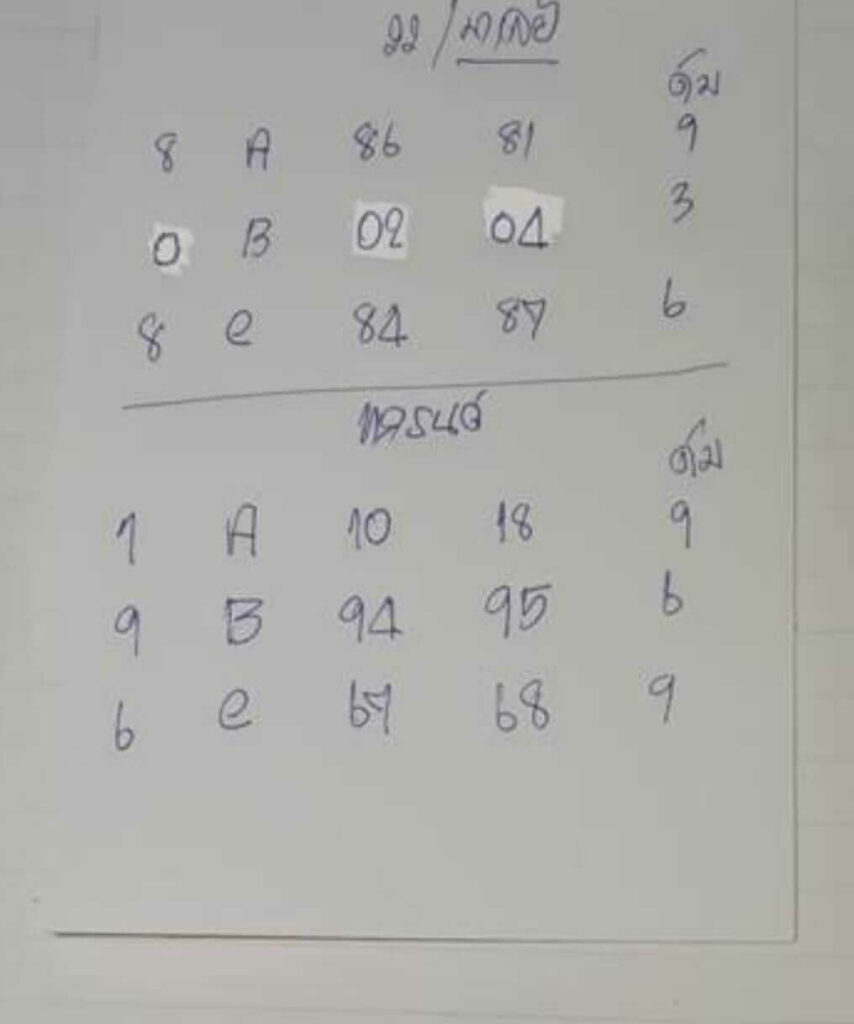 22 / มาเลย์
ดับ
8 A 86 81 9
0 B 02 04 3
8 e 84 87 6
เทรนด์
ดับ
1 A 10 18 9
9 B 94 95 6
6 e 67 68 9